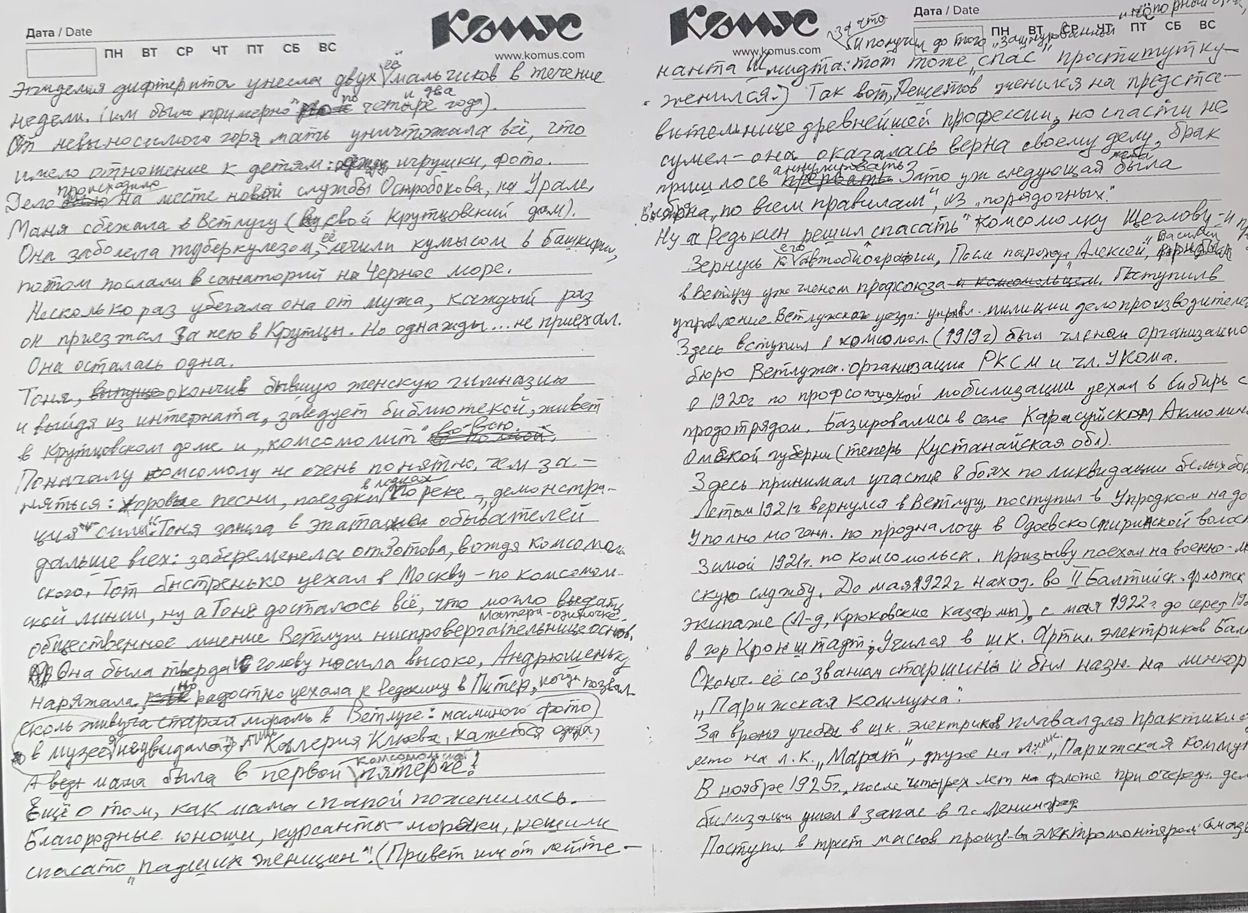 Дата / Date
ПН ВТ СР ЧТ ПТ СБ ВС
Комус
www.komus.com
Эпидемия дифтерита унесла двух её мальчиков в течение
недели. (им было примерно по четыре и два года).
От невыносимого горя мать уничтожала всё, что
имело отношение к детям: игрушки, фото.
Дело происходило на месте новой службы Остробокова, на Урале,
Маня сбежала в Ветлугу (в свой Крутцовский дом).
Она заболела туберкулезом, её лечили кумысом в Башкирии,
потом послали в санаторий на Черное море.
Несколько раз убегала она от мужа, каждый раз
он приезжал за нею в Крутцы. Но однажды... не приехал.
Она осталась одна.
Тоня, окончив бывшую женскую гимназию
и выйдя из интерната, заведует библиотекой, живет
в Крутцовском доме и „комсомолит"
Поначалу комсомолу не очень понятно, чем за-
няться: хоровые песни, поездки в лодках по реке, „демонстра-
ция силы". Тоня зашла в эпатаже обывателей
дальше всех: забеременела от Зотова, вождя комсомоль-
ского. Тот быстренько уехал в Москву - по комсомоль-
ской линии, ну а Тоне досталось всё, что могло выдать
общественное мнение Ветлуги ниспровергательнице основ,
Она была тверда и голову носила высоко, Андрюшеньку
наряжала. но радостно уехала к Редькину в Питер, когда позвал.
(Сколь живуча старая мораль в Ветлуге: маминого фото
в музее Калерия Клюева, кажется одна,
А ведь мама была в первой комсомольской пятерке!
Ещё о том, как мама с папой поженились.
Благородные юноши, курсанты-моряки, решили
спасать „падших женщин". (Привет им от лейте-
Дата / Date
ПН ВТ СР ЧТ ПТ СБ ВС
Комус
www.komus.com
за что
и получил до того „зашнурованный
нанта Шмидта: тот тоже „спас" проститутку-
женился.) Так вот, Решетов женился на предста-
вительнице древнейшей профессии, но спасти не
сумел - она оказалась верна своему делу, брак
пришлось аннулировать. Это уж следующая жена была
выбрана „по всем правилам", из „порядочных".
Ну а Редькин решил спасать комсомолку Щеглову - и
Вернусь к его автобиографии, После парохода „Алексей"
в Ветлугу уже членом профсоюза Поступил в
управление Ветлужского уезда: управл. милиции делопроизводителем
Здесь вступил в комсомол (1919г) был членом организацио
бюро Ветлужск. организации РКСМ и чл. УКома.
в 1920г по профсоюзной мобилизации уехал в Сибирь с
продотрядом. Базировались в селе Карасуйском, Акмолинс
Омской губерни (теперь Кустанайская обл).
Здесь принимал участие в боях по ликвидации белых бан
Летом 1921г вернулся в Ветлугу, поступил в Упродком на до
Уполномочен. по продналогу в Одоевско волос
Зимой 1921г. по комсомольск. призыву поехал на военно-м
скую службу. До мая 1922г наход. во II Балтийск. флотск
экипаже (Л-д, Крюковские казармы), с мая 1922г до серед
в гор Кронштадт, Учился в шк. Артил. электриков Бал
Оконч. её со званием старшины и был назн. на линкор
„Парижская коммуна".
За время учебы в шк. электриков плавал для практики
лето на л.к. „Марат", другое на линк. „Парижская комму
В ноябре 1925г., после четырех лет на флоте при очередн. де
билизации ушел в запас в г. Ленинград
Поступил в трест массов произв-ва электромонтером